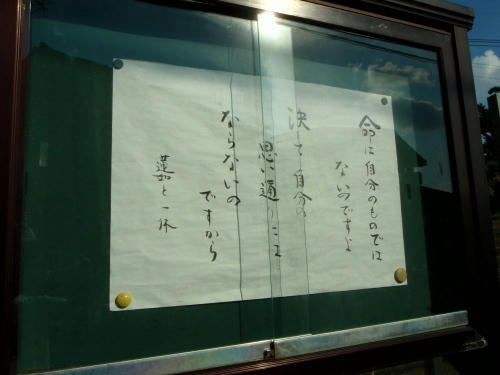 命は自分のものでは
ないのですよ
決して自分の
思い通りには
ならないの
ですから
蓮如と一休